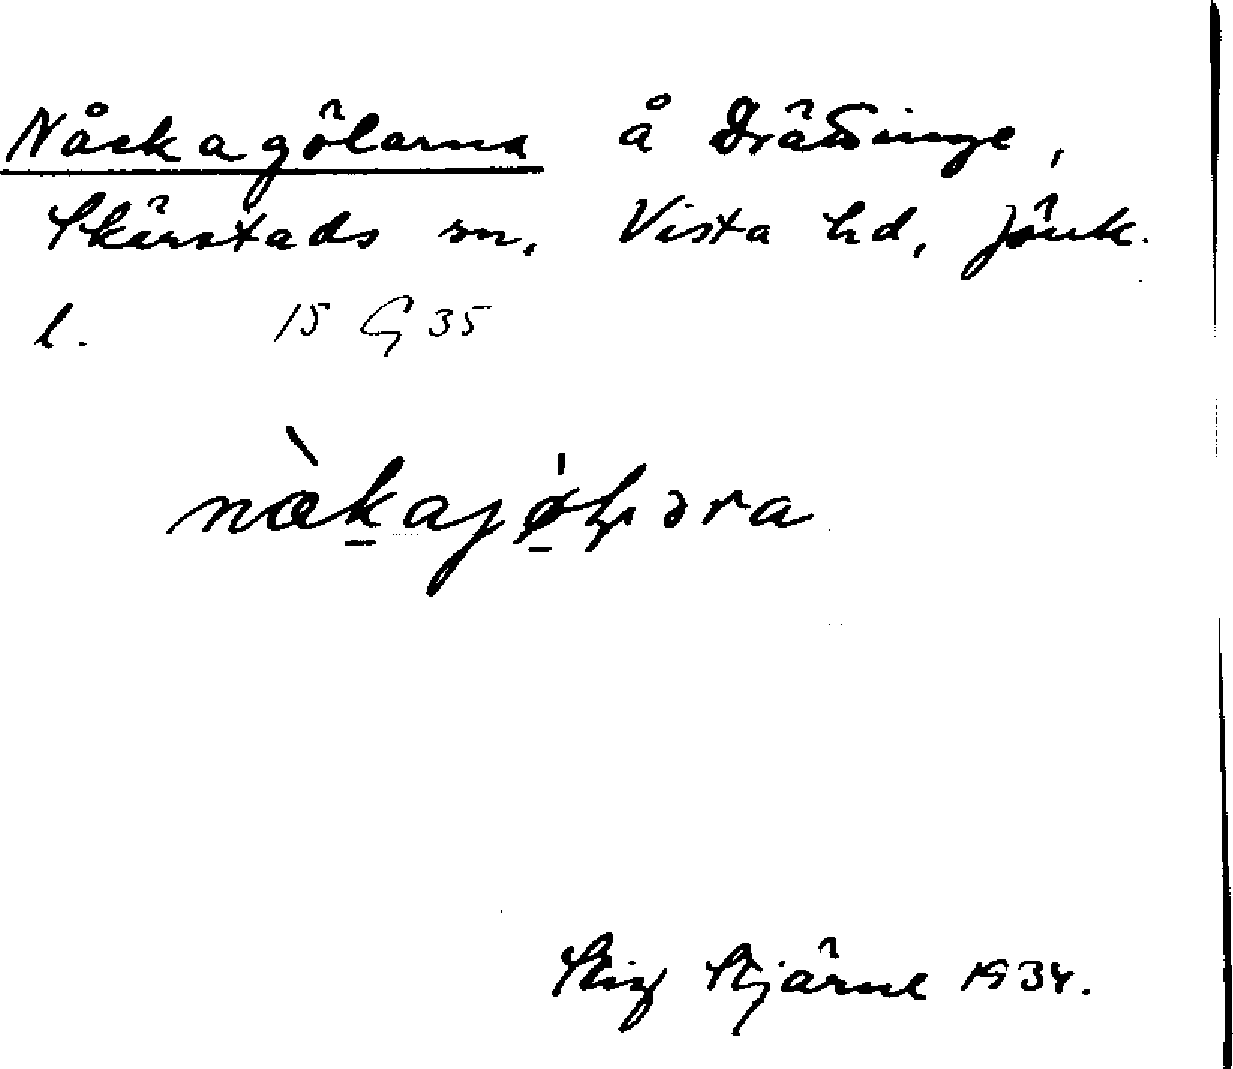 Nåckagölarna å Drättinge,
Skärstads sn. Vista hd, Jönk.
l. 15 G 35
nækajøləra
Stig Stjärne 1934.